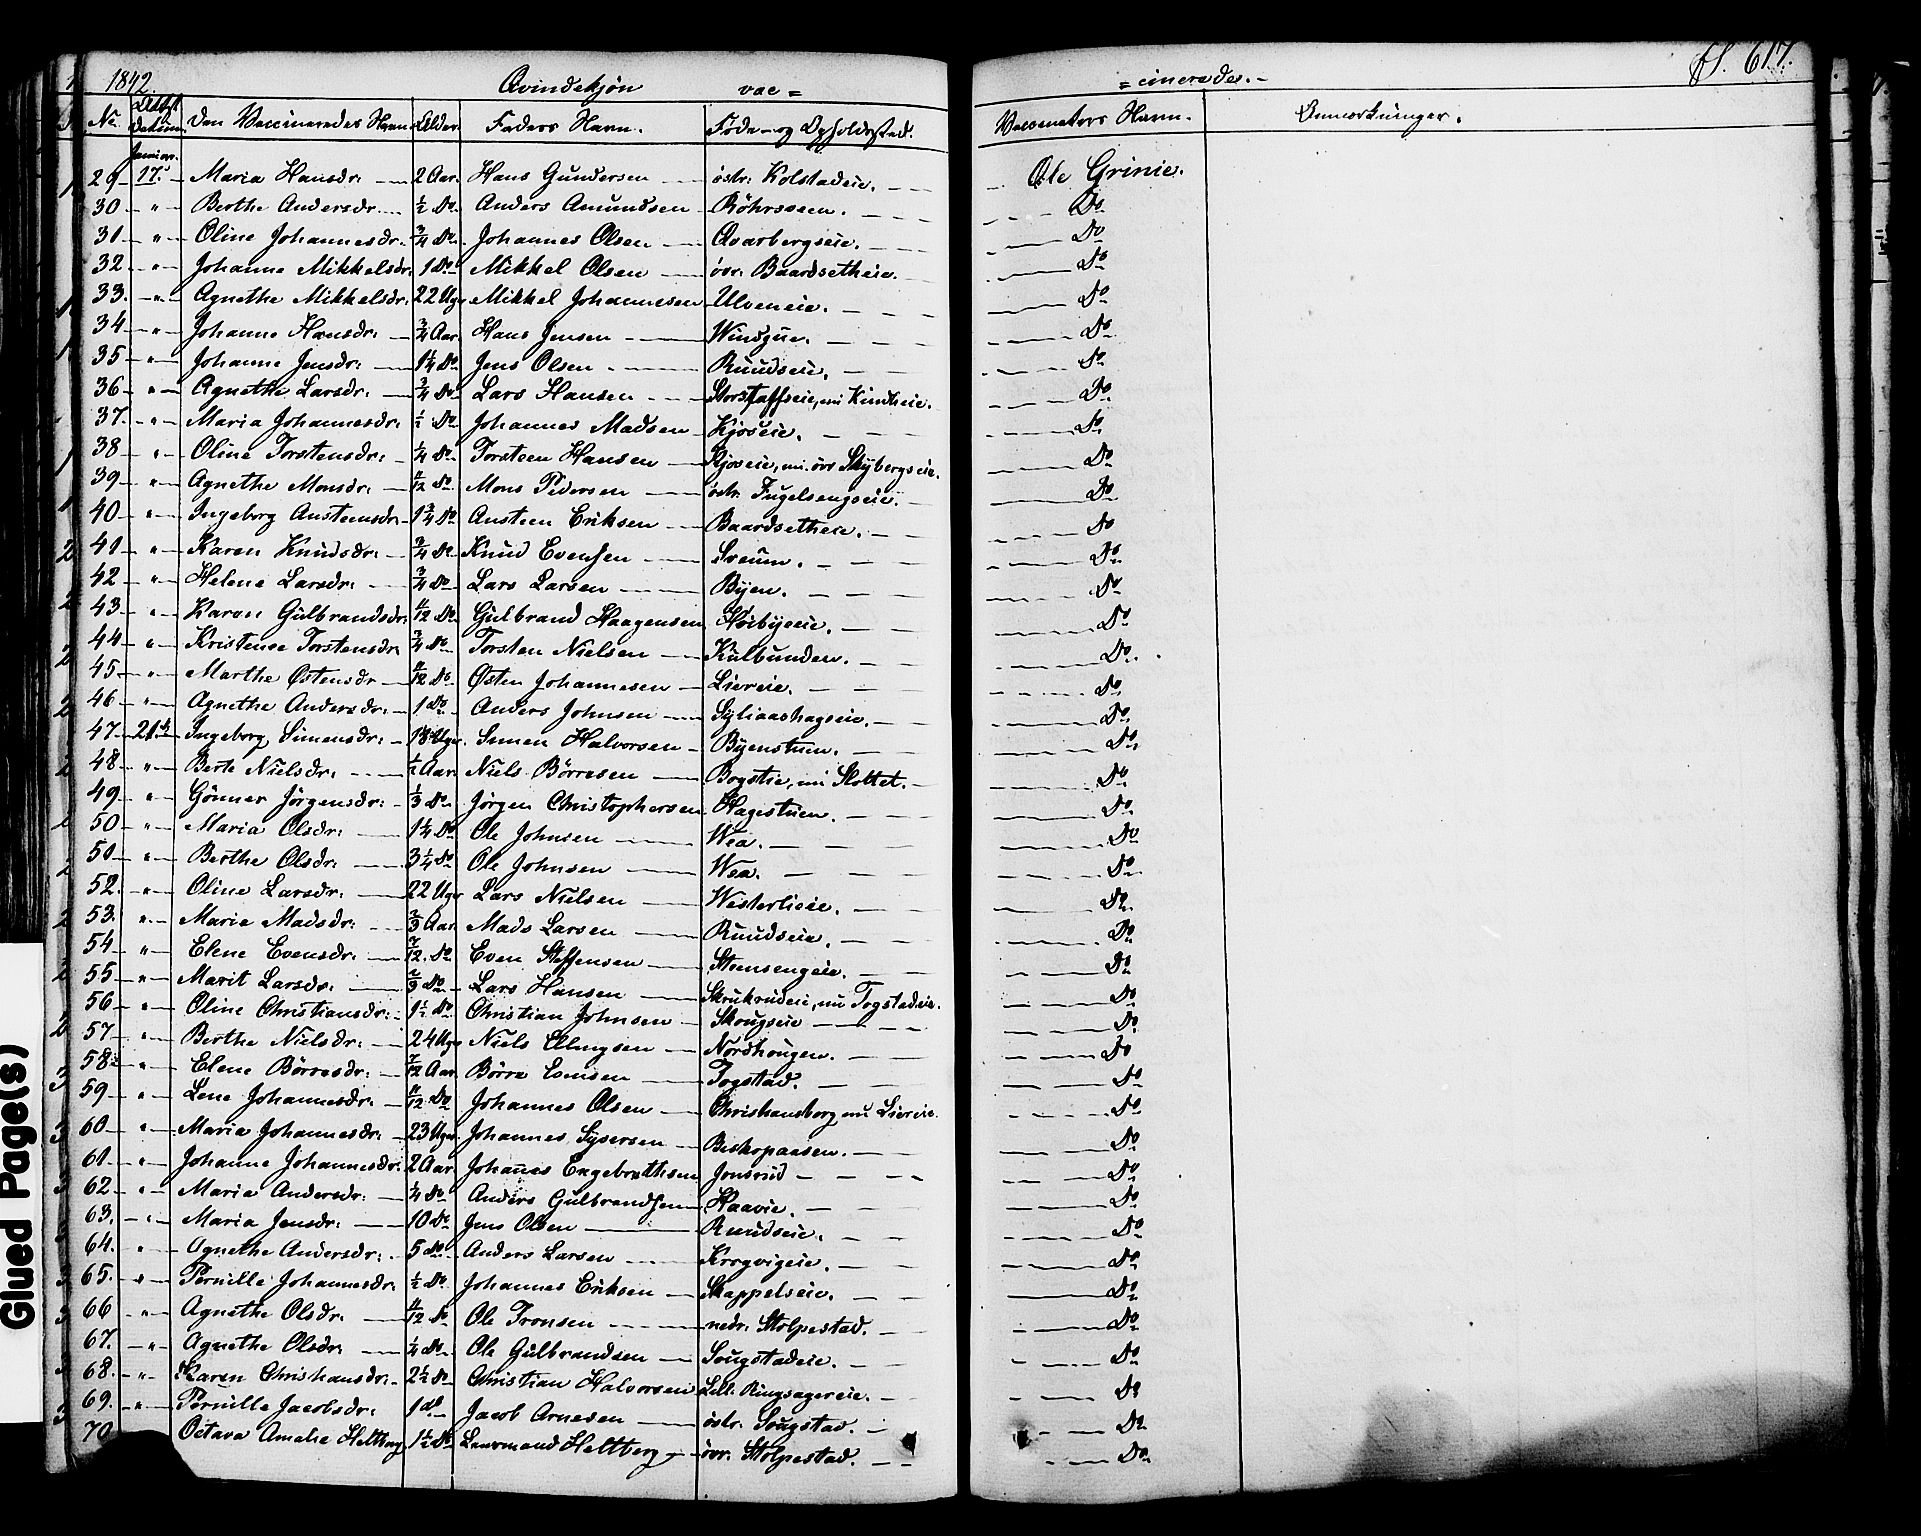 1842. Qvindekjøn vac = = cinerades. - fl. 617.
No. Attst. Datum. Den Vaccineredes Navn. Alder. Faders Navn. Føde- og Opholdsstad. Vaccinators Navn. Anmærkninger.
Junior.
29 17. Maria Hansdr: 2 Aar. Hans Gundersen östr: Kolstadeie. Ole Grinie.
30 " Berthe Andersdr. ½ Do Anders Amundsen Röhrsveen. Do
31 " Oline Johannesdr. ¾ Do Johannes Olsen Qvarbergseie. Do
32 " Johanne Mikkelsdr. 1 Do Mikkel Olsen övr: Baardsetheie. Do
33. " Agnethe Mikkelsdr. 22 Uger Mikkel Johannesen Ulveneie. Do
34 " Johanne Hansdr: ¾ Aar. Hans Jensen Windjue. Do
35 " Johanne Jensdr: 1¼ Do Jens Olsen Ruudseie. Do
36 " Agnethe Larsdr. ¾ Do Lars Hansen Storstaffseie, nu Kindlieie. Do
37. " Maria Johannesdr: ½ Do Johannes Madsen Kjoseie. Do
38 " Oline Torstensdr: ¼ Do Torsteen Hansen Kjoseie, nu övr Skybergseie. Do
39 " Agnethe Monsdr: 11/12 Do Mons Pedersen östr. Fugelsengseie. Do
40 " Ingeborg Austensdr: 1¾ Do Austeen Eriksen Baardsetheie. Do
41 " Karen Knudsdr: ¾ Do Knud Evensen Sveum. Do
42 " Helene Larsdr: ¾ Do Lars Larsen Byen. Do
43 " Karen Gulbrandsdr: 11/12 Do Gulbrand Haagensen Höibyeeie. Do
44 " Kristense Torstensdr ¾ Do Torsten Nielsen Kulbunden. Do
45 " Marthe Østensdr 11/12 Do Østen Johannesen Liereie. Do
46 " Agnethe Andersdr: 1 Do Anders Johnsen Syliaashagseie. Do
47 21de Ingeborg Simensdr: 18 Uger. Simen Halvorsen Byenstuen. Do
48 " Berte Nielsdr: ½ Aar Niels Börresen Bogstie, nu Slottet. Do
49 " Gönner Jörgensdr: ⅓ Do Jörgen Christophersen Hagestuen. Do
50 " Maria Olsdr: 1¼ Do Ole Johnsen Wea. Do
51 " Berthe Olsdr: 3¼ Do Ole Johnsen Wea. Do
52. " Oline Larsdr: 22 Uger Lars Nielsen Westerlieie. Do
53. " Marie Madsdr: ⅔ Aar. Mads Larsen Ruudseie. Do
54 " Elene Evensdr: 7/12. Do Even Steffensen Steensengeie. Do
55 " Marit Larsdr. ⅔ Do Lars Hansen Skrukrudeie, nu Togstadeie. Do
56 " Oline Christiansdr: 1½ Do Christian Johnsen Skougseie Do
57 " Berthe Nielsdr: 24 Uger Niels Elingsen Nordhougen. Do
58 " Elene Börresdr: 7/12 Aar. Börre Evensen Togstad. Do
59 " Lene Johannesdr. 11/12. Do Johannes Olsen Christiansborg nu Liereie. Do
60 " Maria Johannesdr: 23 Uger Johannes Syversen Biskopaasen. Do
61 " Johanne Johannesdr. 2 Aar. Johanes Engebrethsen Jonsrud Do
62 " Maria Andersdr: ¼ Do Anders Gulbrandsen Haavie. Do
63. " Maria Jensdr: 10 Do Jens Olsen Ruudseie. Do
64. " Agnethe Andersdr: 5 Do Anders Larsen Krogvigeie. Do
65. " Pernille Johannesdr: ½ Do Johannes Eriksen Skappelseie. Do
66 " Agnethe Olsdr. 11/12 Do Ole Tronsen nedr: Stolpestad. Do
67. " Agnethe Olsdr: ¼ Do Ole Gulbrandsen Sougstadeie. Do
68. " Karen Christiansdr: 2½ Do Christian Halvorsen Lill: Ringsagereie. Do
69. " Pernille Jacobsdr: 1 Do Jacob Arnesen östr: Sougstad. Do
70 Octava Amalie Heltberg 1½ Do Lensmand Heltberg övr: Stolpestad. Do
Glued Page(s)